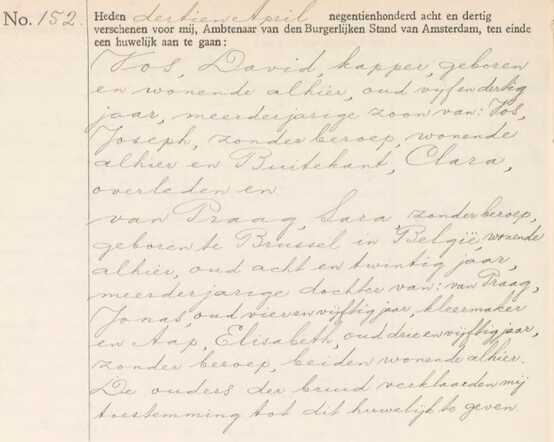 No. 152.
Heden dertien April negentienhonderd acht en dertig
verschenen voor mij, Ambtenaar van den Burgerlijken Stand van Amsterdam, ten einde
een huwelijk aan te gaan:
Vos, David, kapper, geboren
en wonende alhier, oud vijf en dertig
jaar, meerderjarige zoon van: Vos,
Joseph, zonder beroep, wonende
alhier en Buitekant, Clara,
overleden en
van Praag, Sara zonder beroep,
geboren te Brussel in België, wonende
alhier, oud acht en twintig jaar,
meerderjarige dochter van: van Praag,
Jonas, oud vier en vijftig jaar, kleermaker
en Aap, Elisabeth, oud drie en vijftig jaar,
zonder beroep, beiden wonende alhier.
De ouders der bruid verklaarden mij
toestemming tot dit huwelijk te geven.